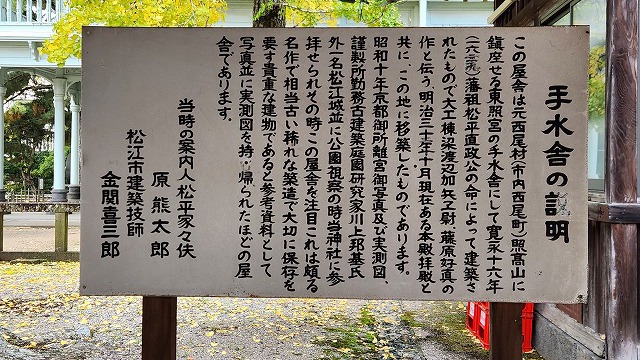 手水舎の説明
この屋舎は元西尾村(市内西尾町)照高山に
鎮座せる東照宮の手水舎にして寛永十六年
(一六三九)藩祖松平直政公の命によって建築さ
れたもので大工棟梁渡辺加兵衛尉 藤原好真の
作と伝う、明治三十年十月現在ある本殿拝殿と
共に、この地に移築したものであります。
昭和十年京都御所離宮御写真及び実測図、
謹製所勤務古建築庭園研究家川上邦基氏
外一名松江城並に公園視察の時当神社に参
拝せられその時この屋舎を注目これは頗る
名作で相当古い稀れな築造で大切に保存を
要す貴重な建物であると参考資料として
写真並に実測図を持ち帰られたほどの屋
舎であります。
当時の案内人松平家々伕
原熊太郎
松江市建築技師
金関喜三郎